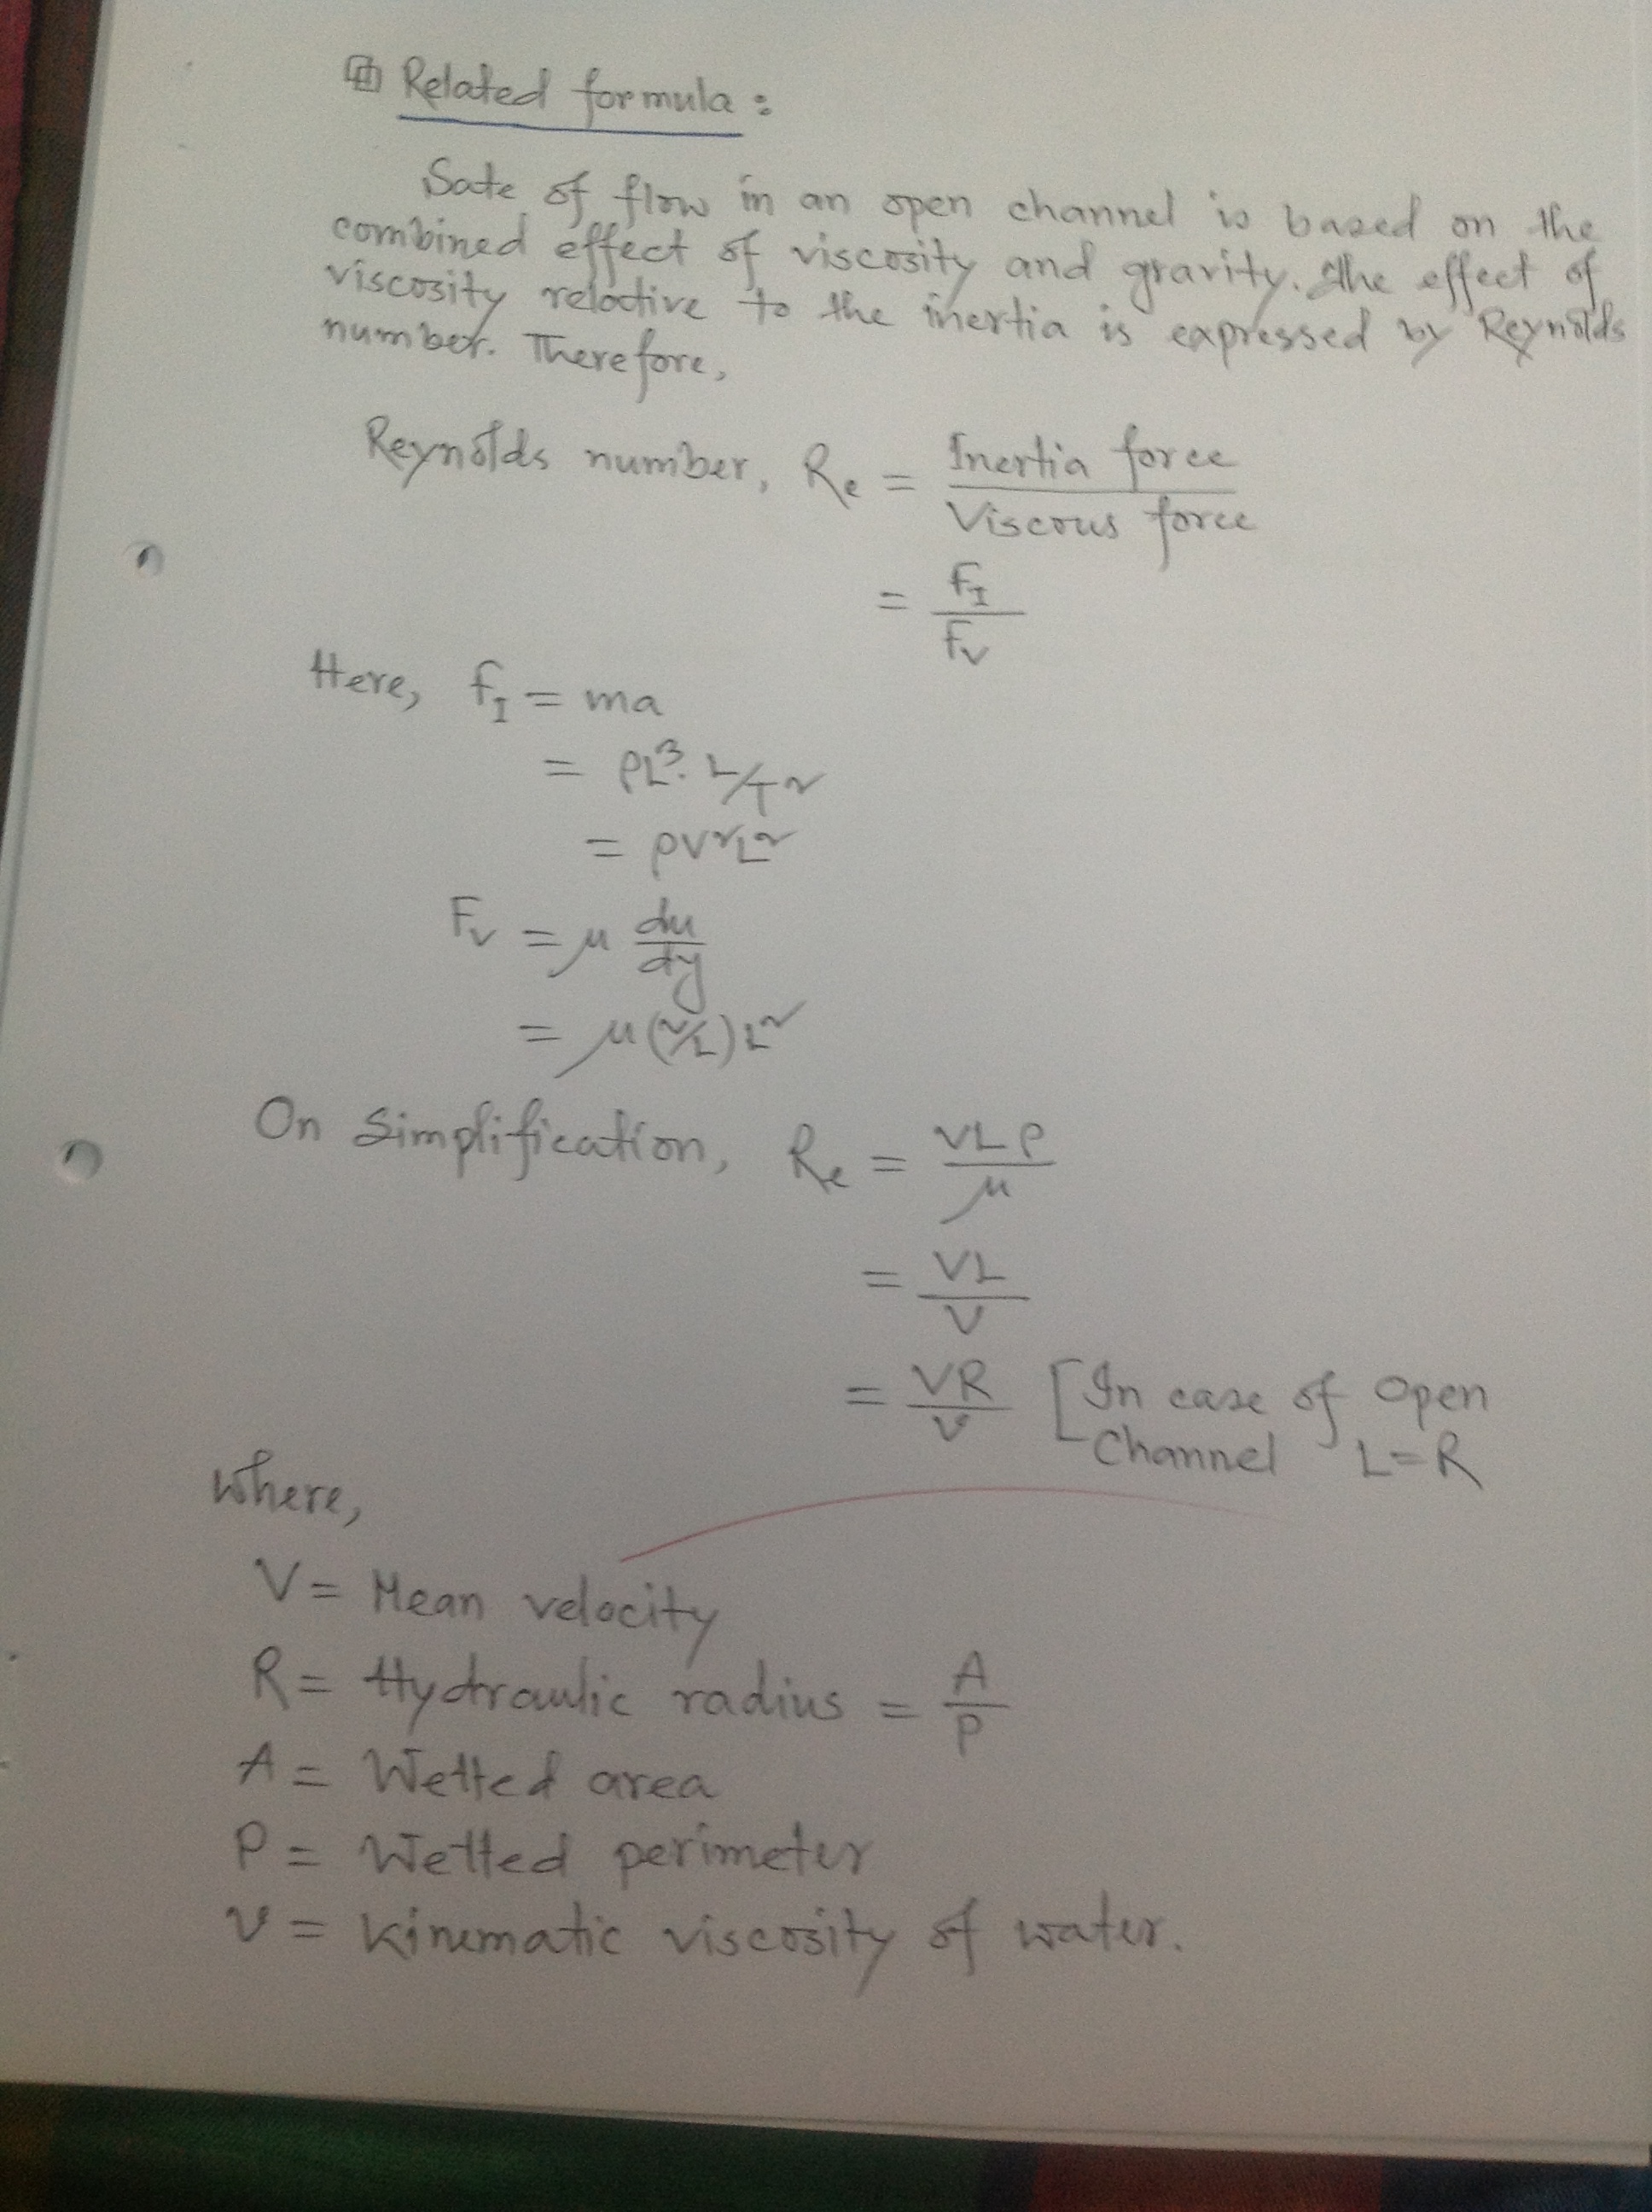 Related formula:
Sate of flow in an open channel is based on the
combined effect of viscosity and gravity. The effect of
viscosity relative to the inertia is expressed by Reynolds
number. Therefore,
Reynolds number, Re = Inertia force / Viscous force
= F_I / F_V
Here, F_I = ma
= ρL³. L/T²
= ρV²L²
F_V = μ du/dy
= μ(V/L)L²
On Simplification, Re = VLρ / μ
= VL / ν
= VR / ν [In case of Open
Channel L=R
Where,
V = Mean velocity
R = Hydraulic radius = A/P
A = Wetted area
P = Wetted perimeter
ν = Kinematic viscosity of water.